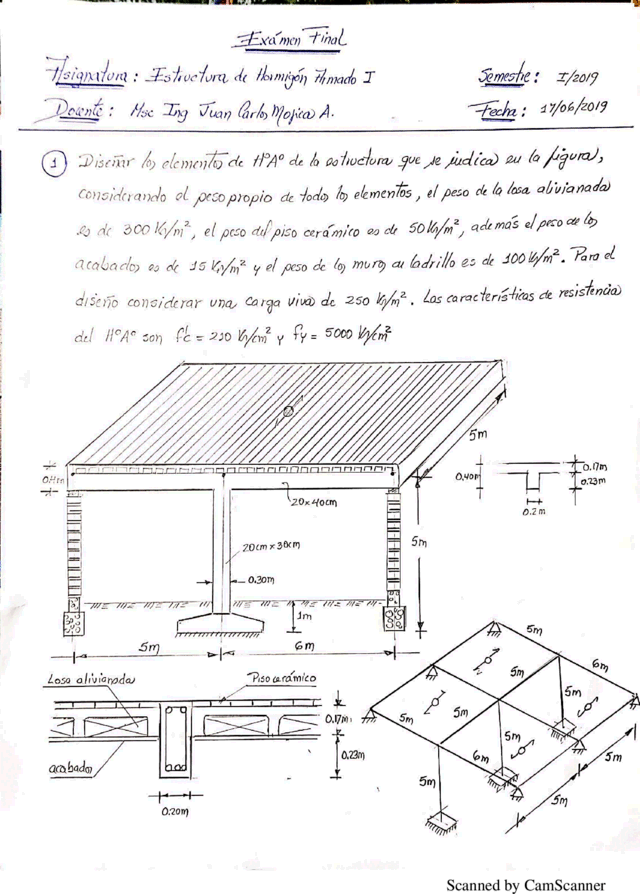 Exámen Final
Asignatura: Estructura de Hormigón Armado I
Semestre: I/2019
Docente: Msc Ing Juan Carlos Mojica A.
Fecha: 17/06/2019
1 Diseñar los elementos de HºAº de la estructura que se indica en la figura,
considerando el peso propio de todos los elementos, el peso de la losa alivianada
es de 300 Kg/m², el peso del piso cerámico es de 50 Kg/m², además el peso de los
acabados es de 15 Kg/m² y el peso de los muros de ladrillo es de 100 Kg/m². Para el
diseño considerar una carga viva de 250 Kg/m². Las características de resistencia
del HºAº son f'c = 210 Kg/cm² y fy = 5000 Kg/cm²
5m
0.40m
0.17m
0.23m
0.2m
20x40cm
20cm x 30cm
0.30m
5m
1m
5m
6m
Losa alivianada
Piso cerámico
0.17m
0.23m
acabados
0.20m
5m
6m
5m
5m
5m
5m
5m
6m
5m
5m
5m
Scanned by CamScanner